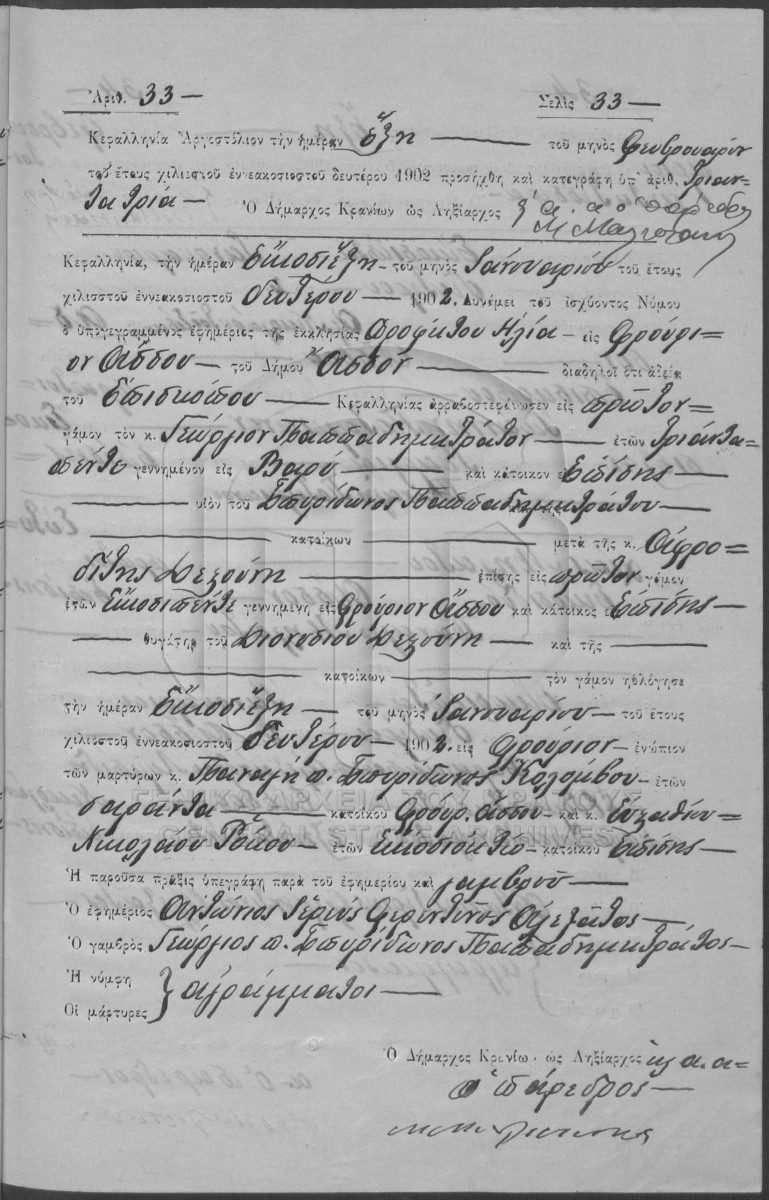 Ἀριθ. 33 — Σελὶς 33 —
Κεφαλληνία Ἀργοστόλιον τὴν ἡμέραν ἕξη — τοῦ μηνὸς Φευβρουαρίου
τοῦ ἔτους χιλιοστοῦ ἐννεακοσιοστοῦ δευτέρου 1902 προσήχθη καὶ κατεγράφη ὑπ' ἀριθ. τριαν-
τα τρία — Ὁ Δήμαρχος Κρανίων ὡς Ληξίαρχος
Κεφαλληνία, τὴν ἡμέραν Εἴκοσι ἕξη — τοῦ μηνὸς Ἰανουαρίου τοῦ ἔτους
χιλιοστοῦ ἐννεακοσιοστοῦ δευτέρου — 1902. Δυνάμει τοῦ ἰσχύοντος Νόμου
ὁ ὑπογεγραμμένος ἐφημέριος τῆς ἐκκλησίας Προφήτου Ἠλία — εἰς Φρούρι=
ον Ἄσσου — τοῦ Δήμου Ἄσσου — διαδηλοῖ ὅτι ἀδείᾳ
τοῦ Ἐπισκόπου — Κεφαλληνίας ἀρραβοστεφάνωσεν εἰς πρῶτον=
γάμον τὸν κ. Γεώργιον Παππαδημητράτον — ἐτῶν τριάντα=
πέντε γεννημένον εἰς Βαρύ — καὶ κάτοικον εἰς Ἐπίσης —
— υἱὸν τοῦ Σπυρίδωνος Παππαδημητράτου —
— κατοίκων — μετὰ τῆς κ. Ἀφρο=
δίτης — ἐπίσης εἰς πρῶτον γάμον
ἐτῶν Εἴκοσι πέντε γεννημένη εἰς Φρούριον Ἄσσου καὶ κάτοικος εἰς Ἐπίσης —
— θυγάτηρ τοῦ Διονυσίου — καὶ τῆς —
— κατοίκων — τὸν γάμον ηὐλόγησε
τὴν ἡμέραν Εἴκοσι ἕξη — τοῦ μηνὸς Ἰανουαρίου — τοῦ ἔτους
χιλιοστοῦ ἐννεακοσιοστοῦ δευτέρου — 1902. εἰς Φρούριον — ἐνώπιον
τῶν μαρτύρων κ. Παναγῆ π. Σπυρίδωνος Κολόμβου — ἐτῶν
σαράντα — κατοίκου Φρουρ. Ἄσσου — καὶ κ. Εὐσταθίου=
Νικολάου — ἐτῶν Εἴκοσι ὀκτώ — κατοίκου Ἐπίσης —
Ἡ παροῦσα πρᾶξις ὑπεγράφη παρὰ τοῦ ἐφημερίου καὶ γαμβροῦ —
Ὁ ἐφημέριος Ἀντώνιος Ἱερεὺς —
Ὁ γαμβρὸς Γεώργιος π. Σπυρίδωνος Παππαδημητράτος —
Ἡ νύμφη
Οἱ μάρτυρες } ἀγράμματοι —
Ὁ Δήμαρχος Κρανίων ὡς Ληξίαρχος κ. α. α=
ὁ πάρεδρος —
ΓΕΝΙΚΑ ΑΡΧΕΙΑ ΤΟΥ ΚΡΑΤΟΥΣ
GENERAL STATE ARCHIVES